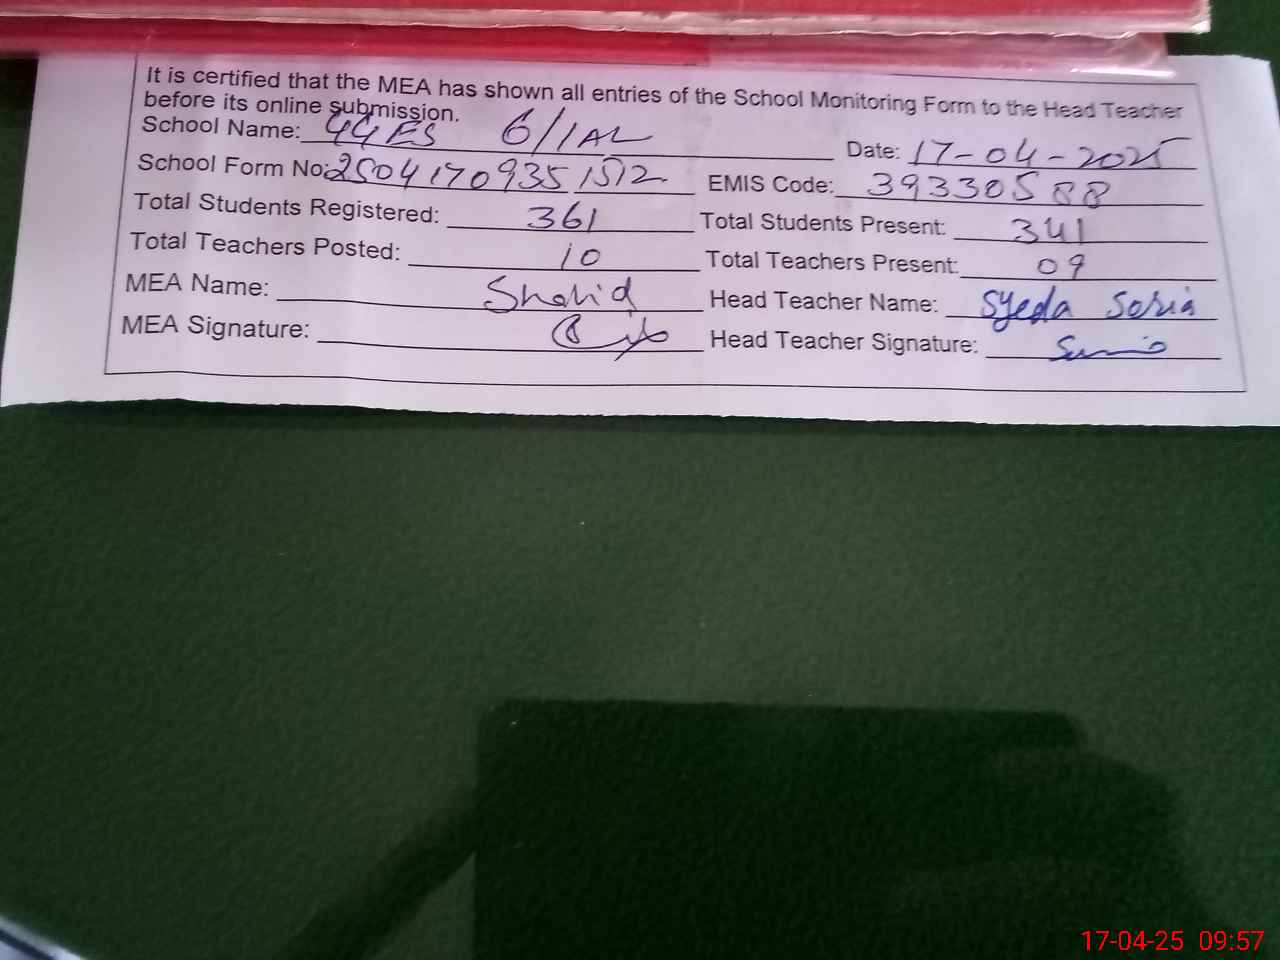 It is certified that the MEA has shown all entries of the School Monitoring Form to the Head Teacher
before its online submission.
School Name: GGES 6/1AL Date: 17-04-2025
School Form No: 2504170935 1512 EMIS Code: 39330588
Total Students Registered: 361 Total Students Present: 341
Total Teachers Posted: 10 Total Teachers Present: 09
MEA Name: Shahid Head Teacher Name: Syeda Sobia
MEA Signature: Head Teacher Signature:
17-04-25 09:57